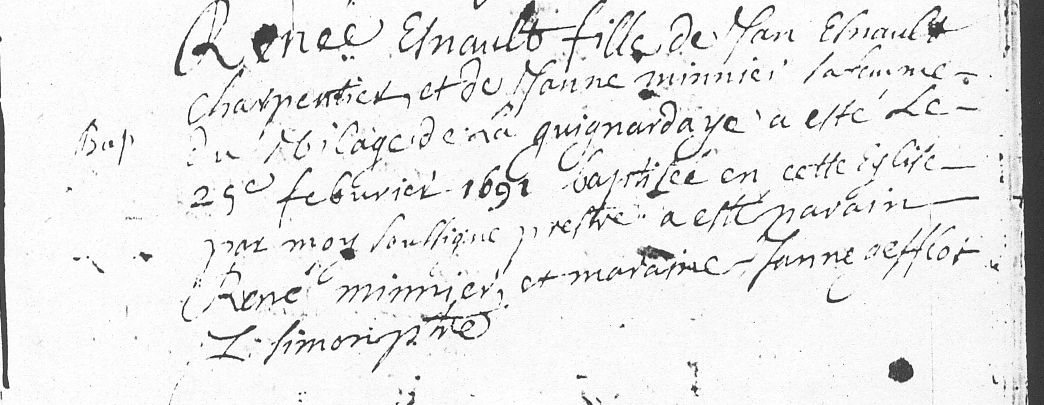 Renée Esnault fille de Jan Esnault
charpentier, et de Janne minnier sa femme
Bap
du vilage de La guignardaye a esté Le
25e feburier 1691 baptisée en cette Eglise
par moy soussigné prestre a esté parain
René minnier, et maraine Janne gefflot
L. simon ptre